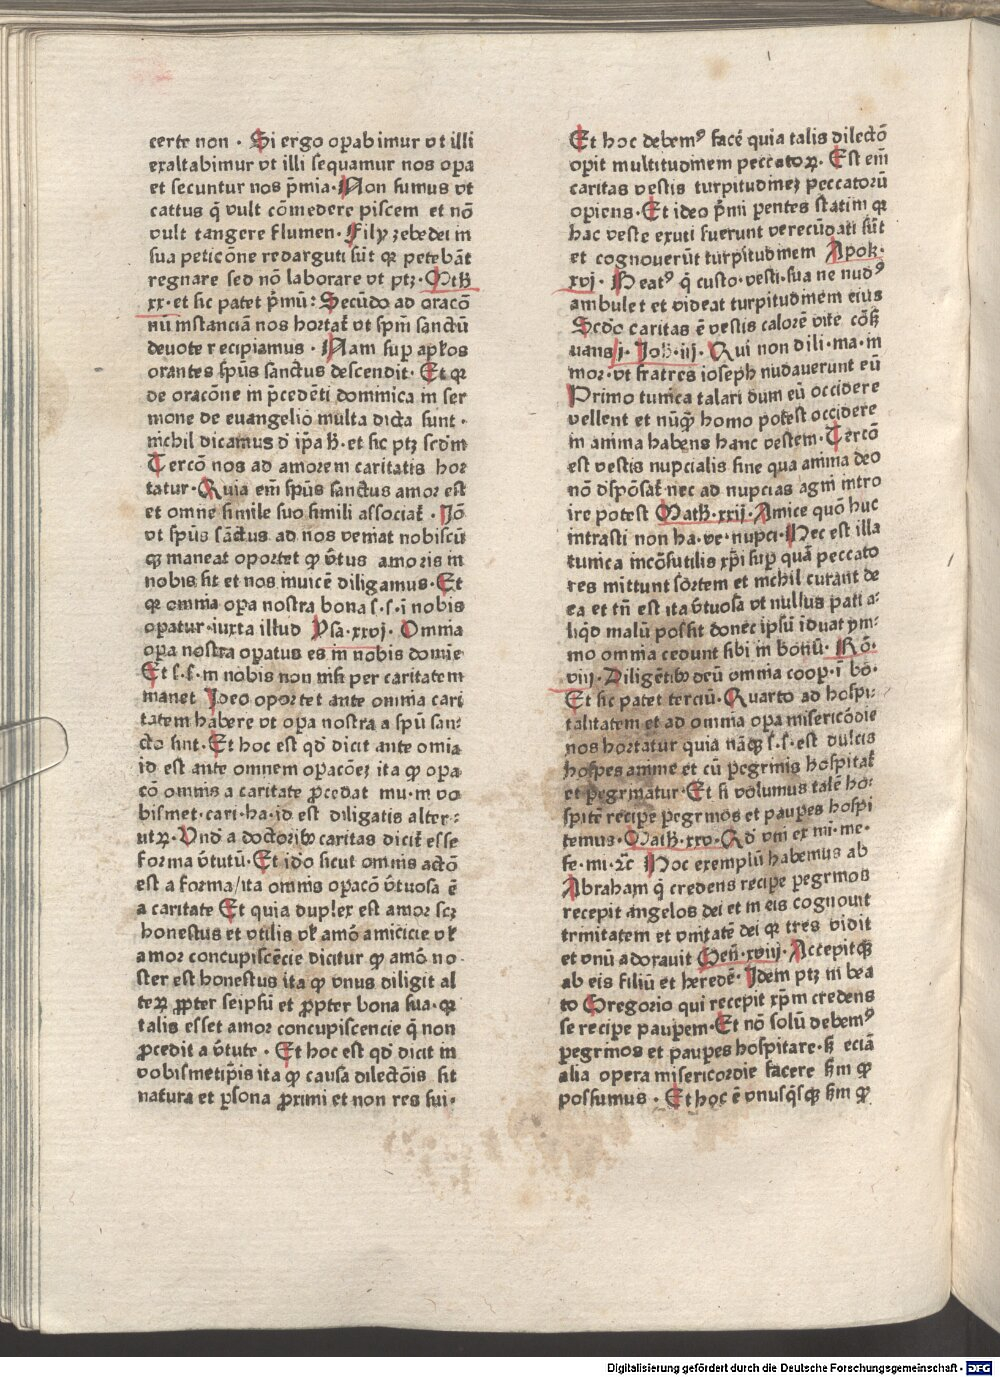 certe non · Si ergo oꝑabimur vt illi
exaltabimur vt illi sequamur nos oꝑa
et secuntur nos p̄mia· Non sumus vt
cattus q̇ vult cōmedere piscem et nō
vult tangere flumen· Filij zebedei in
sua peticōne redarguti sūt qꝛ petebāt
regnare sed nō laborare vt ptꝫ· Mtħ
xx· et sic patet p̄mū: Secūdo ad oracō
nū instanciā nos hortat᷑ vt sp̄m sanctū
deuote recipiamus · Nam suꝑ ap̄l'os
orantes sp̄us sanctus descendit· Et qꝛ
de oracōne in p̄cedēti dominica in ser
mone de euangelio multa dicta sunt ·
nichil dicamus d' ip̄a ħ· et sic ptꝫ scd̄m
Tercō nos ad amorem caritatis hor
tatur· Quia em̄ sp̄us sanctus amor est
et omne simile suo simili associat᷑ · Iō
vt sp̄us sāctus ad nos veniat nobiscū
qꝫ maneat oportet ꝙ v̄tus amoris in
nobis sit et nos inuicē diligamus· Et
qꝛ omnia oꝑa nostra bona s· s· ī nobis
oꝑatur· iuxta illud Ysa· xxvj· Omnia
oꝑa nostra oꝑatus es in nobis domīe
Et s· s· in nobis non nisi per caritatem
manet Ideo oportet ante omnia cari
tatem habere vt oꝑa nostra a sp̄u san⸗
cto sint· Et hoc est qd̄ dicit ante omīa
id est ante omnem oꝑacōeꝫ ita ꝙ oꝑa
cō omnis a caritate ꝓcedat mu· in vo
bismet· cari· ha· id est diligatis alter⸗
utꝝ· Vnd' a doctoribꝫ caritas dicit᷑ esse
forma v̄tutū· Et ido sicut omnis actō
est a forma/ ita omnis oꝑacō v̄tuosa ē
a caritate Et quia duplex est amor scꝫ
honestus et vtilis vl' amō amicicie vl'
amor concupiscēcie dicitur ꝙ amō no⸗
ster est honestus ita ꝙ vnus diligit al
teꝝ ꝓpter seipsū et ꝓpter bona sua· qꝛ
talis esset amor concupiscencie q̇ non
ꝓcedit a v̄tute · Et hoc est qd̄ dicit in
vobismetip̄is ita ꝙ causa dilectōis sit
natura et ꝑsona ꝓximi et non res sui·
Et hoc debemꝰ facē quia talis dilectō
oꝑit multitudinem peccatoꝝ· Est em̄
caritas vestis turpitudineꝫ peccatorū
oꝑiens· Et ideo p̄mi ꝑentes statim qꝛ
hac veste exuti fuerunt verecūdati sūt
et cognouerūt turpitudinem Apok·
xvj· Beatꝰ q̇ custo· vesti· sua ne nudꝰ
ambulet et videat turpitudinem eius
Scd̄o caritas ē vestis calorē vite cōẜ
uans j· Joħ· iij· Qui non dili· ma· in
mor· vt fratres ioseph nudauerunt eū
Primo tunica talari dum eū occidere
vellent et nūqꝫ homo potest occidere
in anima habens hanc vestem· Tercō
est vestis nupcialis sine qua anima deo
nō dispōsat᷑ nec ad nupcias agni intro
ire potest Math· xxij· Amice quō huc
intrasti non ha· ve· nupci· Hec est illa
tunica incōsutilis xp̄i suꝑ quā peccato
res mittunt sortem et nichil curant de
ea et tn̄ est ita v̄tuosa vt nullus pati a⸗
liqd̄ malū possit donec ipsū īduat ym⸗
mo omnia cedunt sibi in bonū· Rō·
viij· Diligētibꝫ deū omnia cooꝑ· ī bo·
Et sic patet terciū· Quarto ad hospi⸗
talitatem et ad omnia oꝑa misericōdie
nos hortatur quia nāqꝫ s· s· est dulcis
hospes anime et cū ꝑegrinis hospitat᷑
et ꝑegrinatur· Et si volumus talē ho⸗
spitē reciꝑe ꝑegrinos et pauꝑes hospi
temus· Math· xxv· Qd̄ vni ex mi· me·
fe· mi· ꝛc̄ Hoc exemplū habemus ab
Abraham q̇ credens reciꝑe ꝑegrinos
recepit angelos dei et in eis cognouit
trinitatem et vnitatē dei qꝛ tres vidit
et vnū adorauit Gen̄· xviij· Accepitqꝫ
ab eis filiū et heredē· Idem ptꝫ in bea
to Gregorio qui recepit xp̄m credens
se reciꝑe pauꝑem· Et nō solū debemꝰ
ꝑegrinos et pauꝑes hospitare· ẜ eciā
alia opera misericordie facere ẜm ꝙ
possumus · Et hoc ē vnusq̇sqꝫ ẜm ꝙ
Digitalisierung gefördert durch die Deutsche Forschungsgemeinschaft - DFG